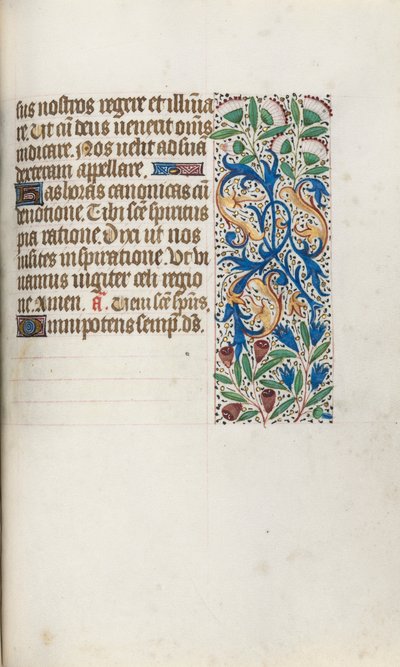 sus nostros regere et illumina
re. Ut cū deus venerit om̄s
iudicare. Nos velit ad sua
dexteram appellare.
Has horas canonicas cū
devotione. Tibi scē spiritus
pia ratione. Dixi ut nos
visites inspiratione. Ut vi
vamus iugiter celi regio
ne. Amen. a. Veni scē sp̄us.
Omnipotens semp̄. ds̄.